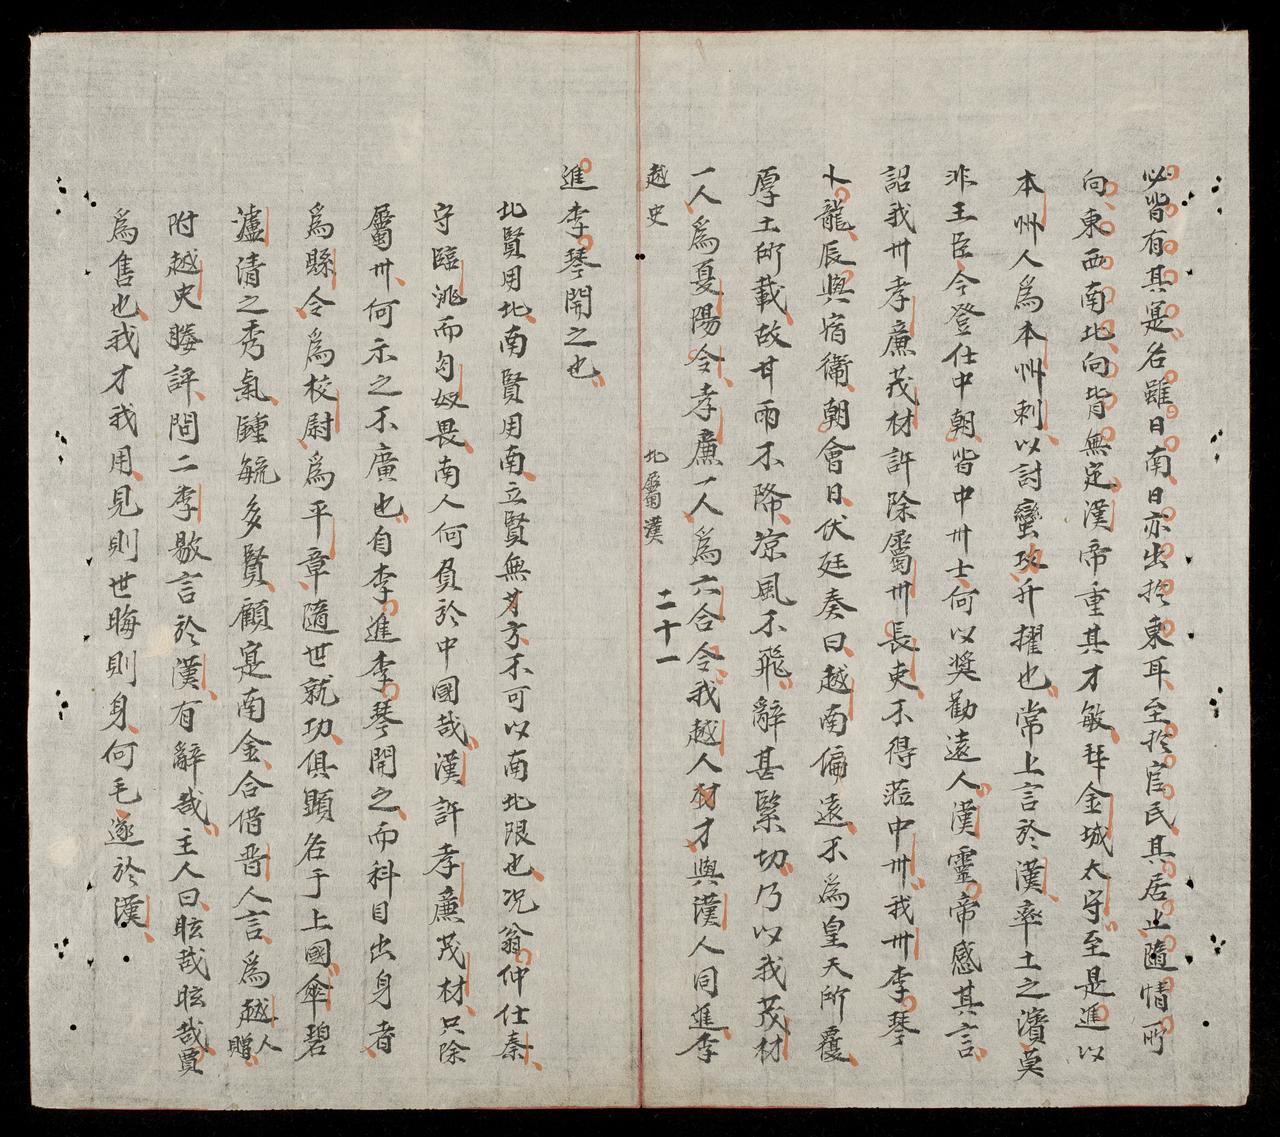 必皆有其寔名雖日南日亦出於東耳至於官民其居止隨情所
向東西南北向皆無定漢帝重其才敏拜金城太守至是進以
本州人爲本州刺以討蠻攻升擢也常上言於漢率土之濱莫
非王臣今登仕中朝皆中州士何以奬勸遠人漢靈帝感其言
詔我州孝廉茂材許除屬州長吏不得蒞中州我州李琴
卜龍辰與宿衛朝會日伏廷奏曰越南偏遠不爲皇天所覆
厚土所載故甘雨不降涼風不飛辭甚緊切乃以我茂材
一人爲夏陽令孝廉一人爲六合令我越人材才與漢人同進李
越史 北屬漢 二十一
進李琴開之也
北賢用北南賢用南立賢無才方不可以南北限也况翁仲仕秦
守臨洮而匈奴畏南人何負於中國哉漢許孝廉茂材只除
屬州何示之不廣也自李進李琴開之而科目出身者
爲縣令爲校尉爲平章隨世就功俱顯名于上國傘碧
瀘清之秀氣鍾毓多賢顧寔南金合借晋人言爲越人贈
附越史勝評間二李歇言於漢有辭哉主人曰眩哉眩哉賈
爲售也我才我用見則世晦則身何毛遂於漢